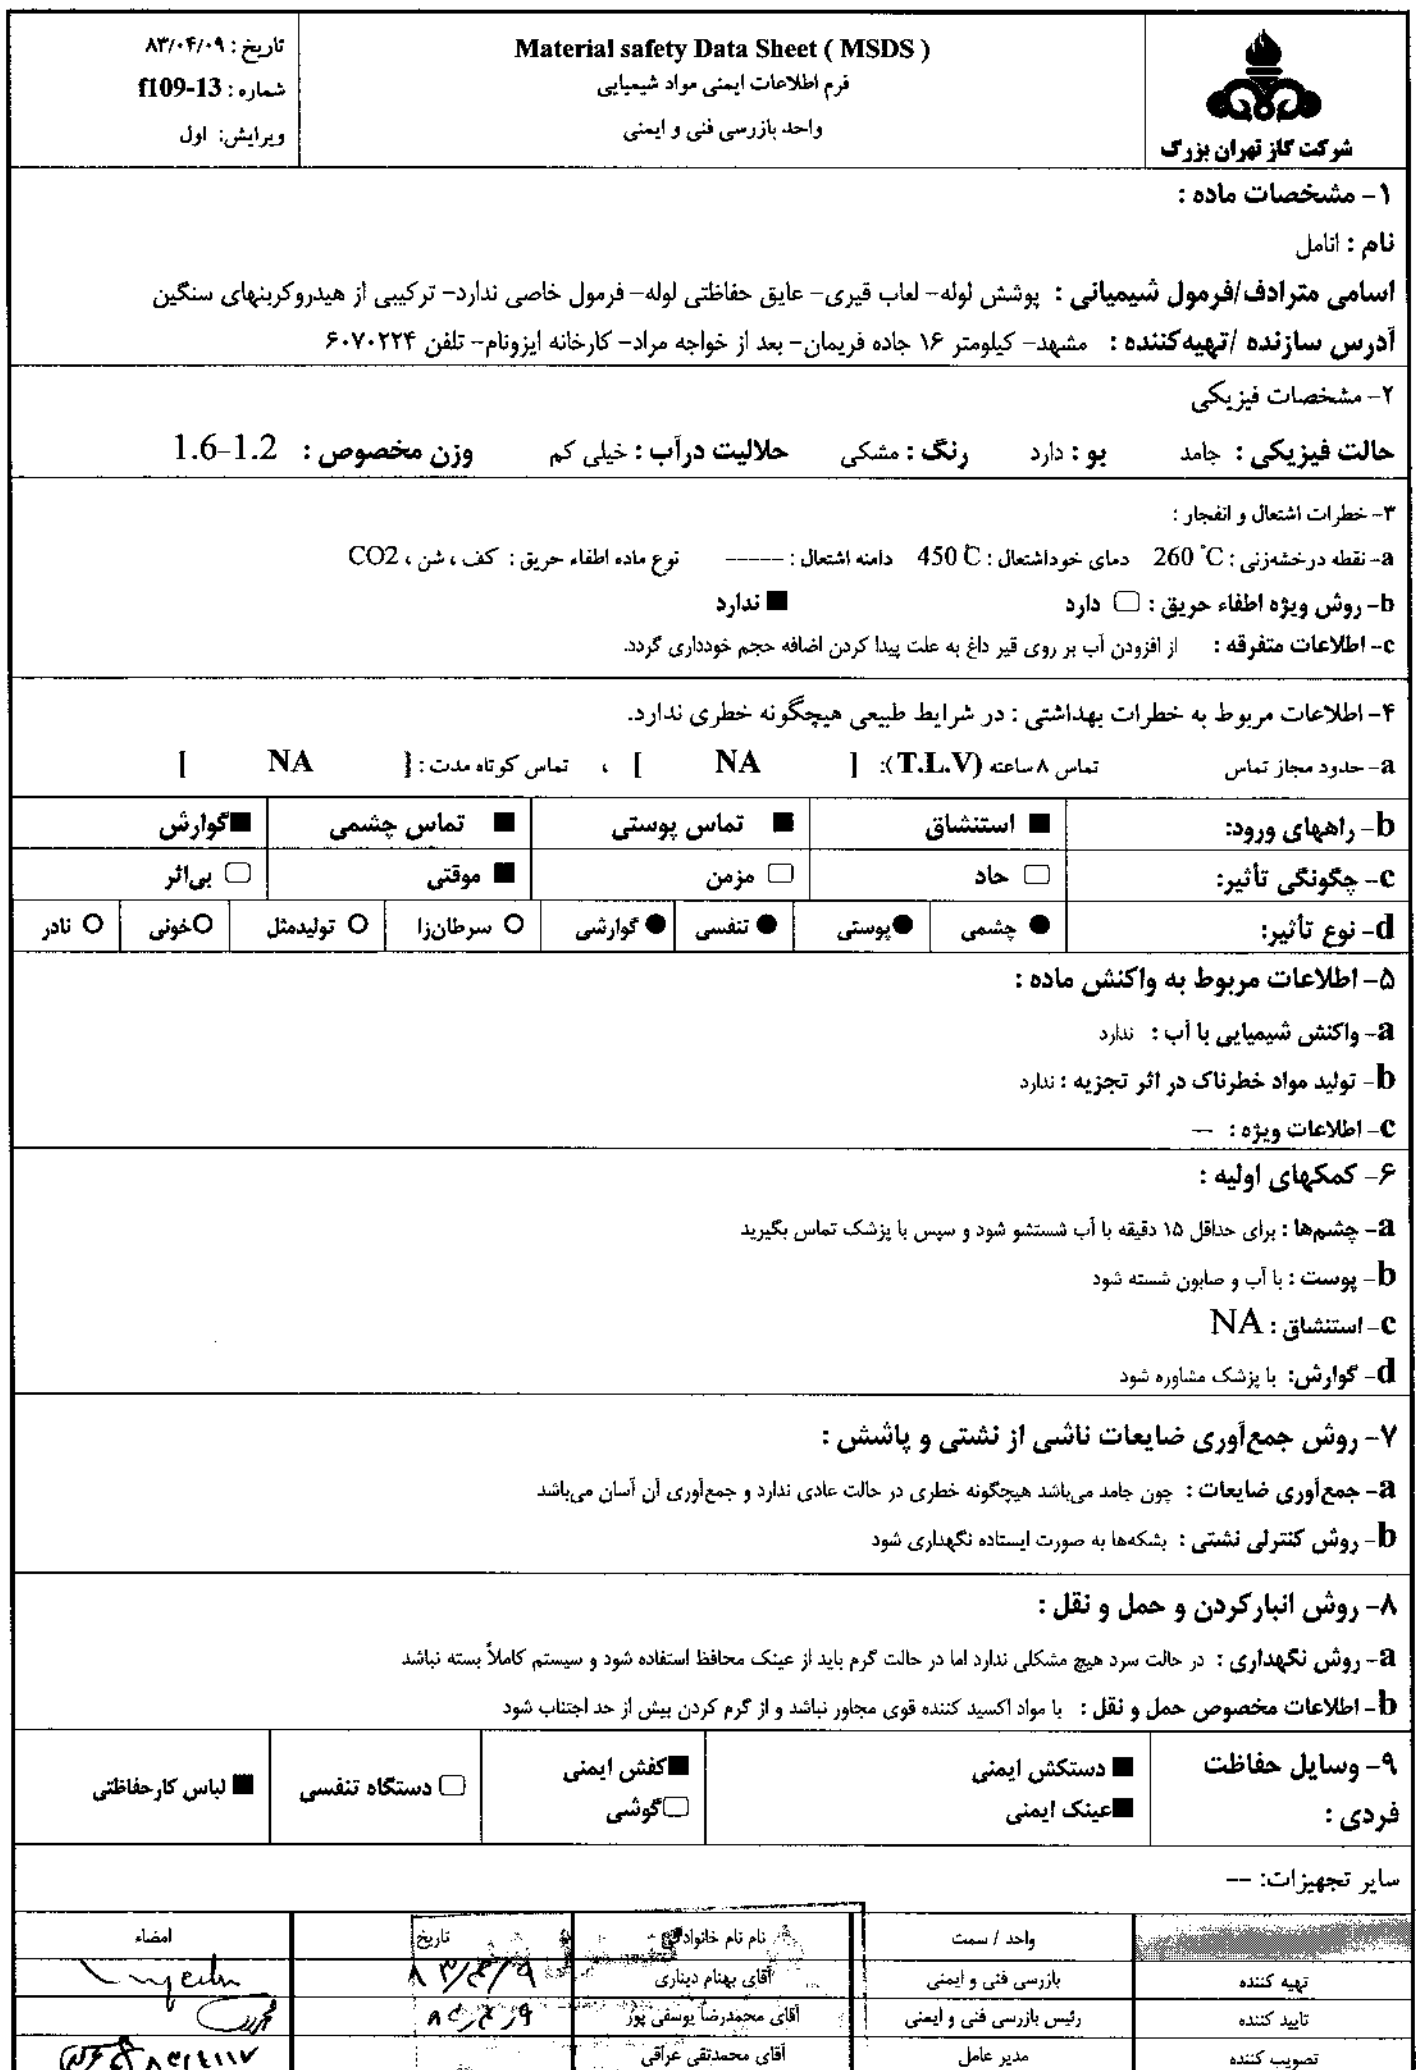 شرکت گاز تهران بزرگ
Material safety Data Sheet ( MSDS )
فرم اطلاعات ایمنی مواد شیمیایی
واحد بازرسی فنی و ایمنی
تاریخ : ۸۳/۰۴/۰۹
شماره : f109-13
ویرایش: اول
۱- مشخصات ماده :
نام : انامل
اسامی مترادف/فرمول شیمیائی : پوشش لوله- لعاب قیری- عایق حفاظتی لوله- فرمول خاصی ندارد- ترکیبی از هیدروکربنهای سنگین
آدرس سازنده /تهیه‌کننده : مشهد- کیلومتر ۱۶ جاده فریمان- بعد از خواجه مراد- کارخانه ایزونام- تلفن ۶۰۷۰۲۲۴
۲- مشخصات فیزیکی
حالت فیزیکی : جامد بو : دارد رنگ : مشکی حلالیت درآب : خیلی کم وزن مخصوص : 1.6-1.2
۳- خطرات اشتعال و انفجار :
a- نقطه درخشه‌زنی : 260 °C دمای خوداشتعال : 450 °C دامنه اشتعال : ----- نوع ماده اطفاء حریق : کف ، شن ، CO2
b- روش ویژه اطفاء حریق : □ دارد ■ ندارد
c- اطلاعات متفرقه : از افزودن آب بر روی قیر داغ به علت پیدا کردن اضافه حجم خودداری گردد.
۴- اطلاعات مربوط به خطرات بهداشتی : در شرایط طبیعی هیچگونه خطری ندارد.
a- حدود مجاز تماس تماس ۸ ساعته (T.L.V): [ NA ] ، تماس کوتاه مدت : [ NA ]
b- راههای ورود: ■ استنشاق ■ تماس پوستی ■ تماس چشمی ■گوارش
c- چگونگی تأثیر: □ حاد □ مزمن ■ موقتی □ بی‌اثر
d- نوع تأثیر: ● چشمی ●پوستی ● تنفسی ● گوارشی ○ سرطان‌زا ○ تولیدمثل ○خونی ○ نادر
۵- اطلاعات مربوط به واکنش ماده :
a- واکنش شیمیایی با آب : ندارد
b- تولید مواد خطرناک در اثر تجزیه : ندارد
c- اطلاعات ویژه : —
۶- کمکهای اولیه :
a- چشم‌ها : برای حداقل ۱۵ دقیقه با آب شستشو شود و سپس با پزشک تماس بگیرید
b- پوست : با آب و صابون شسته شود
c- استنشاق : NA
d- گوارش: با پزشک مشاوره شود
۷- روش جمع‌آوری ضایعات ناشی از نشتی و پاشش :
a- جمع‌آوری ضایعات : چون جامد می‌باشد هیچگونه خطری در حالت عادی ندارد و جمع‌آوری آن آسان می‌باشد
b- روش کنترلی نشتی : بشکه‌ها به صورت ایستاده نگهداری شود
۸- روش انبارکردن و حمل و نقل :
a- روش نگهداری : در حالت سرد هیچ مشکلی ندارد اما در حالت گرم باید از عینک محافظ استفاده شود و سیستم کاملاً بسته نباشد
b- اطلاعات مخصوص حمل و نقل : با مواد اکسید کننده قوی مجاور نباشد و از گرم کردن بیش از حد اجتناب شود
۹- وسایل حفاظت فردی :
■ دستکش ایمنی ■کفش ایمنی □ دستگاه تنفسی ■ لباس کارحفاظتی
■عینک ایمنی □گوشی
سایر تجهیزات: --
واحد / سمت نام نام خانوادگی تاریخ امضاء
تهیه کننده بازرسی فنی و ایمنی آقای بهنام دیناری ۸۳/۴/۹
تایید کننده رئیس بازرسی فنی و ایمنی آقای محمدرضا یوسفی پور ۸۳/۴/۹
تصویب کننده مدیر عامل آقای محمدتقی عراقی